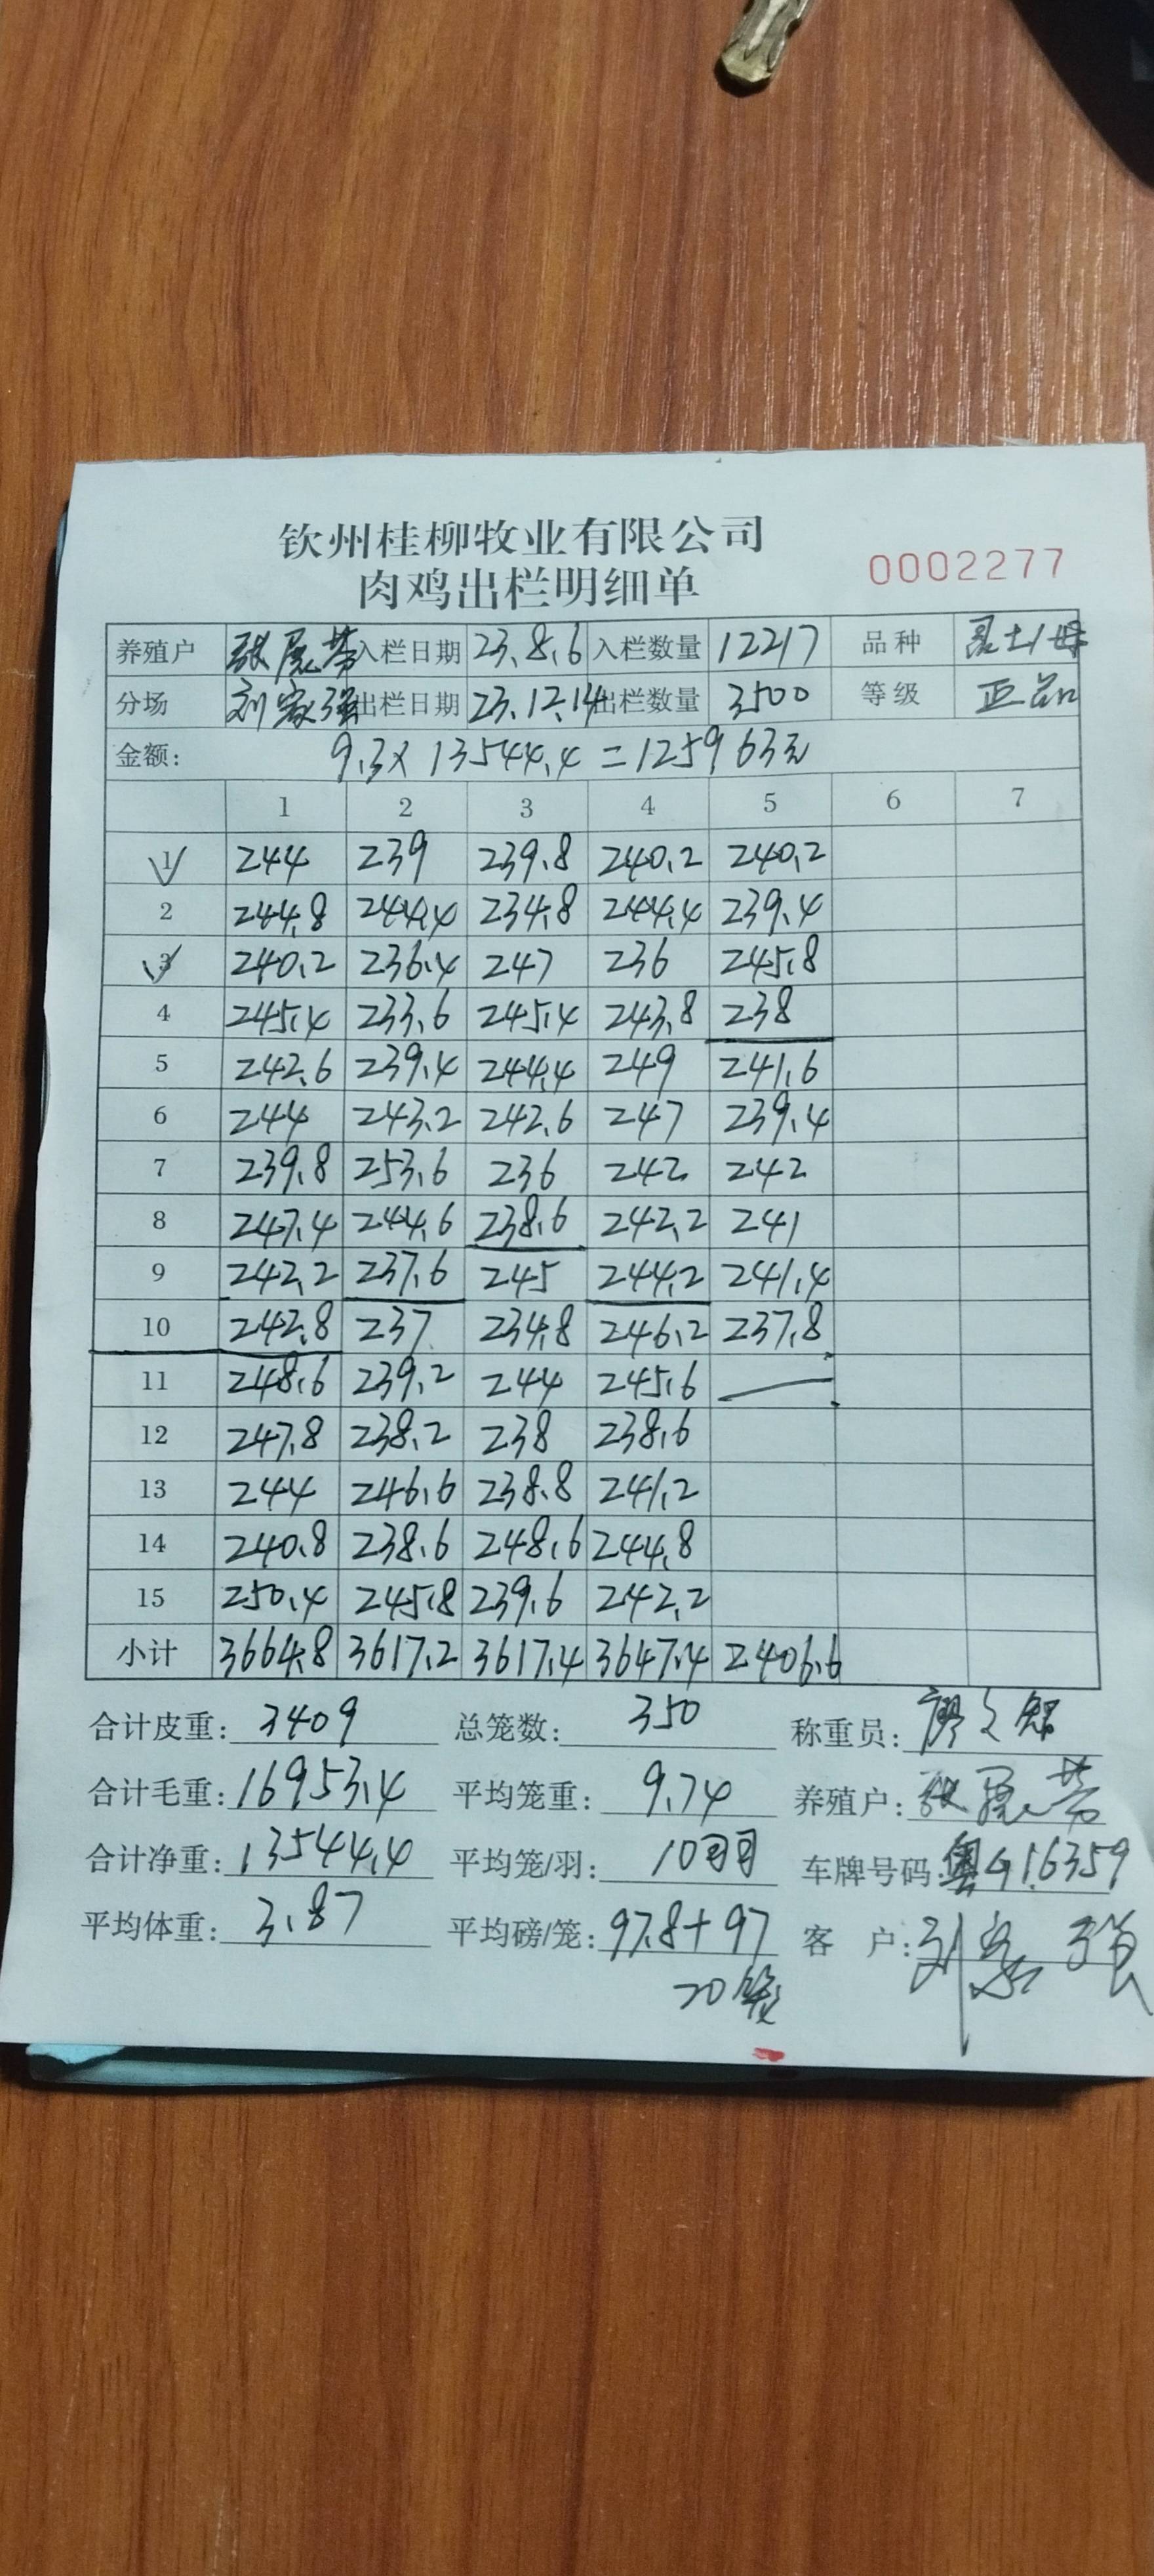 钦州桂柳牧业有限公司
肉鸡出栏明细单
0002277
养殖户 入栏日期 23.8.6 入栏数量 12217 品种
分场 刘家强 出栏日期 23.12.14 出栏数量 3500 等级 正品
金额: 9.3×13544.4=125963元
1 2 3 4 5 6 7
1 244 239 239.8 240.2 240.2
2 244.8 244.4 234.8 244.4 239.4
3 240.2 236.4 247 236 245.8
4 245.4 233.6 245.4 243.8 238
5 242.6 239.4 244.4 249 241.6
6 244 243.2 242.6 247 239.4
7 239.8 253.6 236 242 242
8 247.4 244.6 238.6 242.2 241
9 242.2 237.6 245 244.2 241.4
10 242.8 237 234.8 246.2 237.8
11 248.6 239.2 244 245.6
12 247.8 238.2 238 238.6
13 244 246.6 238.8 241.2
14 240.8 238.6 248.6 244.8
15 250.4 245.8 239.6 242.2
小计 3664.8 3617.2 3617.4 3647.4 2406.6
合计皮重: 3409 总笼数: 350 称重员:
合计毛重: 16953.4 平均笼重: 9.74 养殖户:
合计净重: 13544.4 平均笼/羽: 10 车牌号码:
平均体重: 3.87 平均磅/笼: 97.8+97 客 户: 刘家强